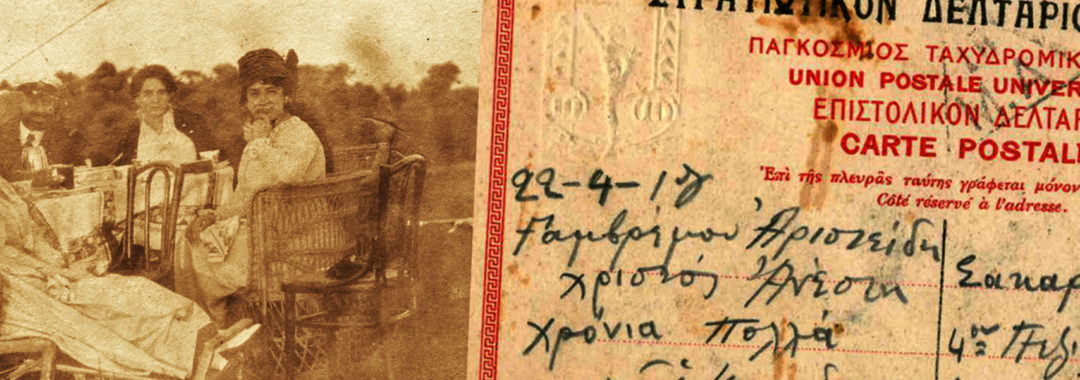 ΣΤΡΑΤΙΩΤΙΚΟΝ ΔΕΛΤΑΡΙΟ
ΠΑΓΚΟΣΜΙΟΣ ΤΑΧΥΔΡΟΜΙΚ
UNION POSTALE UNIVER
ΕΠΙΣΤΟΛΙΚΟΝ ΔΕΛΤΑΡ
CARTE POSTAL
Ἐπὶ τῆς πλευρᾶς ταύτης γράφεται μόνον
Côté réservé à l'adresse.
22-4-18
Γαμβρέ μου Ἀριστείδη
Χριστός Ἀνέστη
Χρόνια Πολλά
Σακαρ
4ον Πεζι